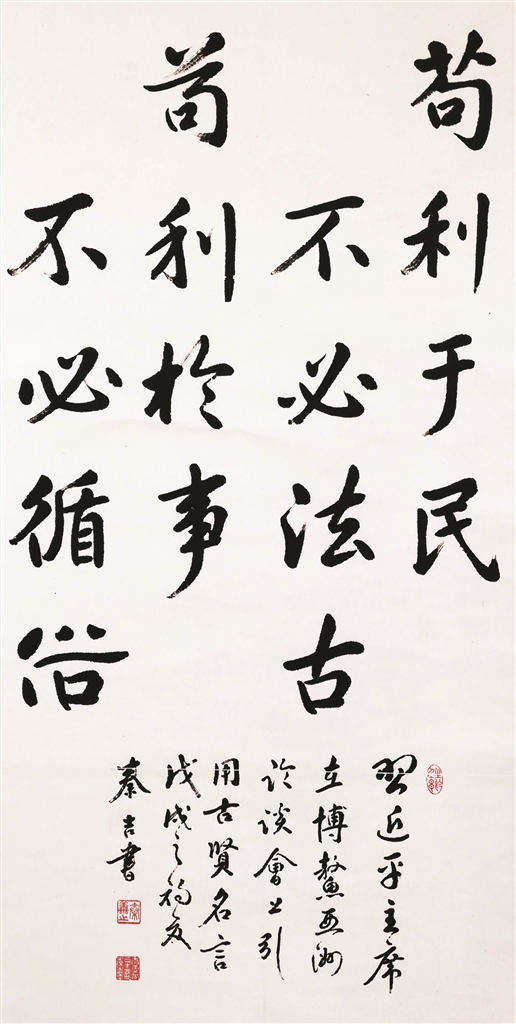 苟利于民
不必法古
苟利於事
不必循俗
習近平主席
在博鰲亞洲
論談會上引
用古賢名言
戊戌之初夏
秦吉書